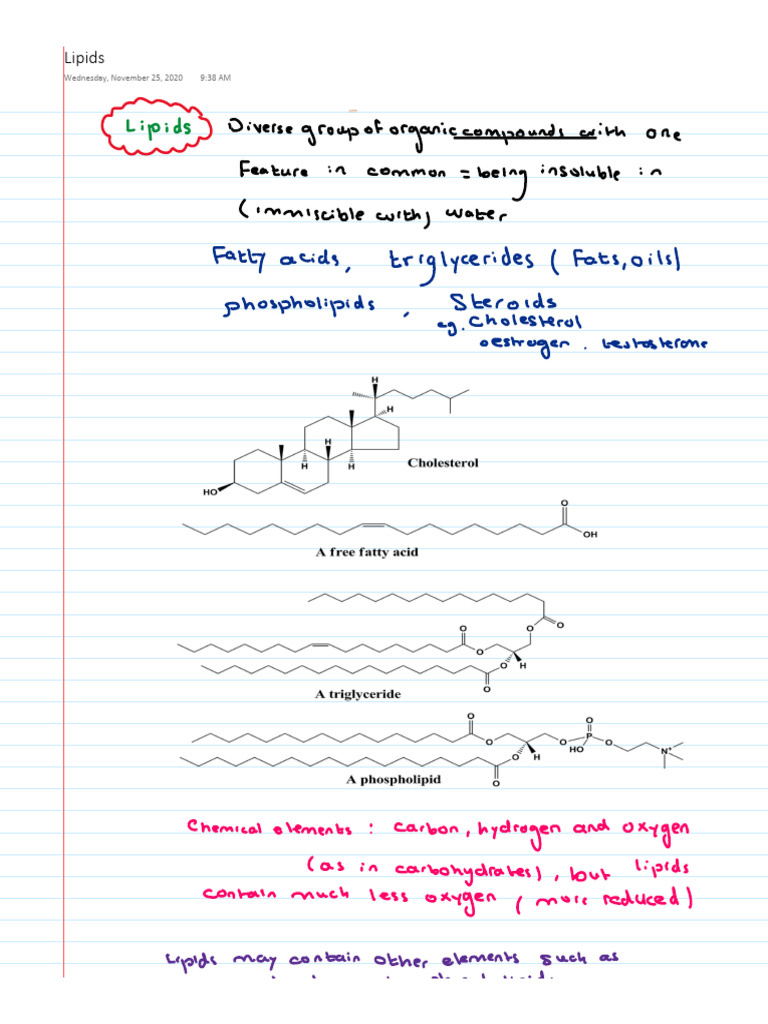 Lipids
Wednesday, November 25, 2020 9:38 AM
Lipids Diverse group of organic compounds with one
Feature in common = being insoluble in
(immiscible with) water
Fatty acids, triglycerides (Fats, oils)
phospholipids, Steroids
eg. Cholesterol
oestrogen. testosterone
H
H
H
H
H
HO
Cholesterol
O
OH
A free fatty acid
O
O
O
O
O
H
O
A triglyceride
O
O
O
O
P
O
HO
N+
O
H
O
A phospholipid
Chemical elements : carbon, hydrogen and oxygen
(as in carbohydrates), but lipids
contain much less oxygen (more reduced)
Lipids may contain other elements such as